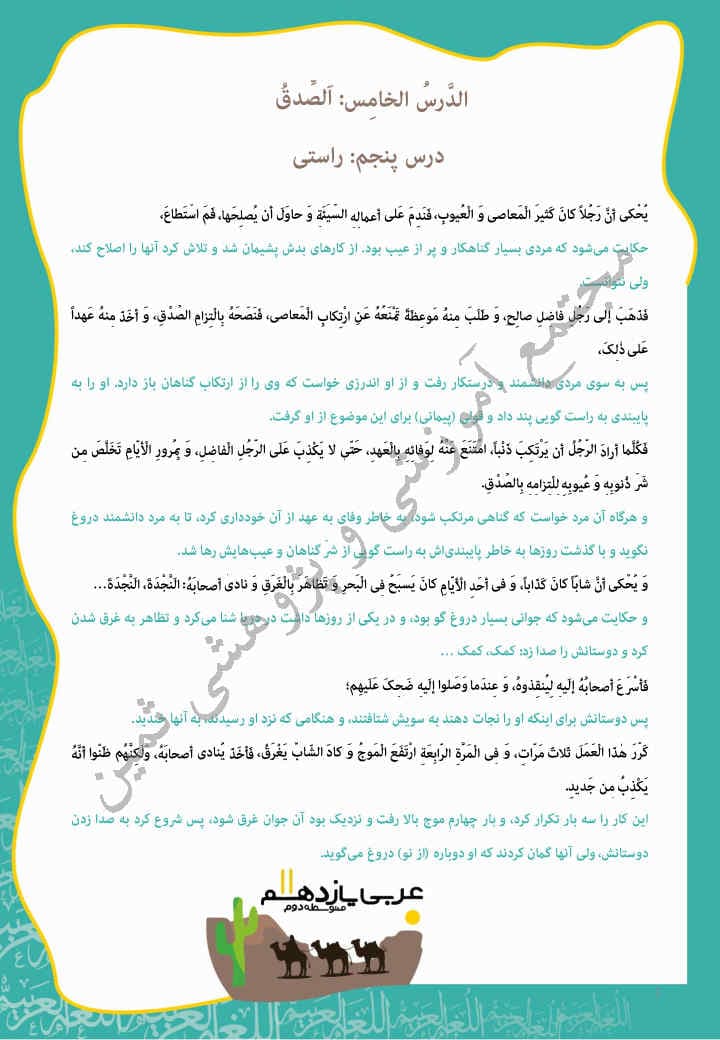 الدَّرسُ الخامِس: اَلصِّدقُ
درس پنجم: راستی
یُحْکی أنَّ رَجُلاً کانَ کَثیرَ الْمَعاصی وَ الْعُیوبِ، فَنَدِمَ عَلی أعمالِهِ السَّیِّئَةِ وَ حاوَلَ أن یُصلِحَها، فَمَ اسْتَطاعَ،
حکایت می‌شود که مردی بسیار گناهکار و پر از عیب بود. از کارهای بدش پشیمان شد و تلاش کرد آنها را اصلاح کند،
ولی نتوانست.
فَذَهَبَ إلی رَجُلٍ فاضِلٍ صالِحٍ، وَ طَلَبَ مِنهُ مَوعِظَةً تَمْنَعُهُ عَنِ ارْتِکابِ الْمَعاصی، فَنَصَحَهُ بِالْتِزامِ الصِّدْقِ، وَ أخَذَ مِنهُ عَهداً
عَلی ذٰلِکَ،
پس به سوی مردی دانشمند و درستکار رفت و از او اندرزی خواست که وی را از ارتکاب گناهان باز دارد. او را به
پایبندی به راست گویی پند داد و قولی (پیمانی) برای این موضوع از او گرفت.
فَکُلَّما أرادَ الرَّجُلُ أن یَرْتَکِبَ ذَنْباً، امْتَنَعَ عَنْهُ لِوَفائِهِ بِالْعَهدِ، حَتّی لا یَکْذِبَ عَلَی الرَّجُلِ الْفاضِلِ، وَ بِمُرورِ الْأیّامِ تَخَلَّصَ مِن
شَرِّ ذُنوبِهِ وَ عُیوبِهِ لِالْتِزامِهِ بِالصِّدْقِ.
و هرگاه آن مرد خواست که گناهی مرتکب شود، به خاطر وفای به عهد از آن خودداری کرد، تا به مرد دانشمند دروغ
نگوید و با گذشت روزها به خاطر پایبندی‌اش به راست گویی از شرّ گناهان و عیب‌هایش رها شد.
وَ یُحْکی أنَّ شابّاً کانَ کَذّاباً، وَ فی أحَدِ الْأیّامِ کانَ یَسبَحُ فِی الْبَحرِ وَ تَظاهَرَ بِالْغَرَقِ وَ نادی أصحابَهُ: النَّجْدَةَ، النَّجْدَةَ...
و حکایت می‌شود که جوانی بسیار دروغ گو بود، و در یکی از روزها داشت در دریا شنا می‌کرد و تظاهر به غرق شدن
کرد و دوستانش را صدا زد: کمک، کمک ...
فَأسْرَعَ أصحابُهُ إلَیهِ لِیُنقِذوهُ، وَ عِندَما وَصَلوا إلَیهِ ضَحِکَ عَلَیهِم؛
پس دوستانش برای اینکه او را نجات دهند به سویش شتافتند، و هنگامی که نزد او رسیدند، به آنها خندید.
کَرَّرَ هٰذا الْعَمَلَ ثَلاثَ مَرّاتٍ، وَ فِی الْمَرَّةِ الرّابِعَةِ ارْتَفَعَ الْمَوجُ وَ کادَ الشّابُّ یَغْرَقُ، فَأخَذَ یُنادی أصحابَهُ، وَلٰکِنَّهُم ظَنّوا أنَّهُ
یَکْذِبُ مِن جَدیدٍ.
این کار را سه بار تکرار کرد، و بار چهارم موج بالا رفت و نزدیک بود آن جوان غرق شود، پس شروع کرد به صدا زدن
دوستانش، ولی آنها گمان کردند که او دوباره (از نو) دروغ می‌گوید.
مجتمع آموزشی و پژوهشی ثمین
عربی یازدهم
متوسطه دوم